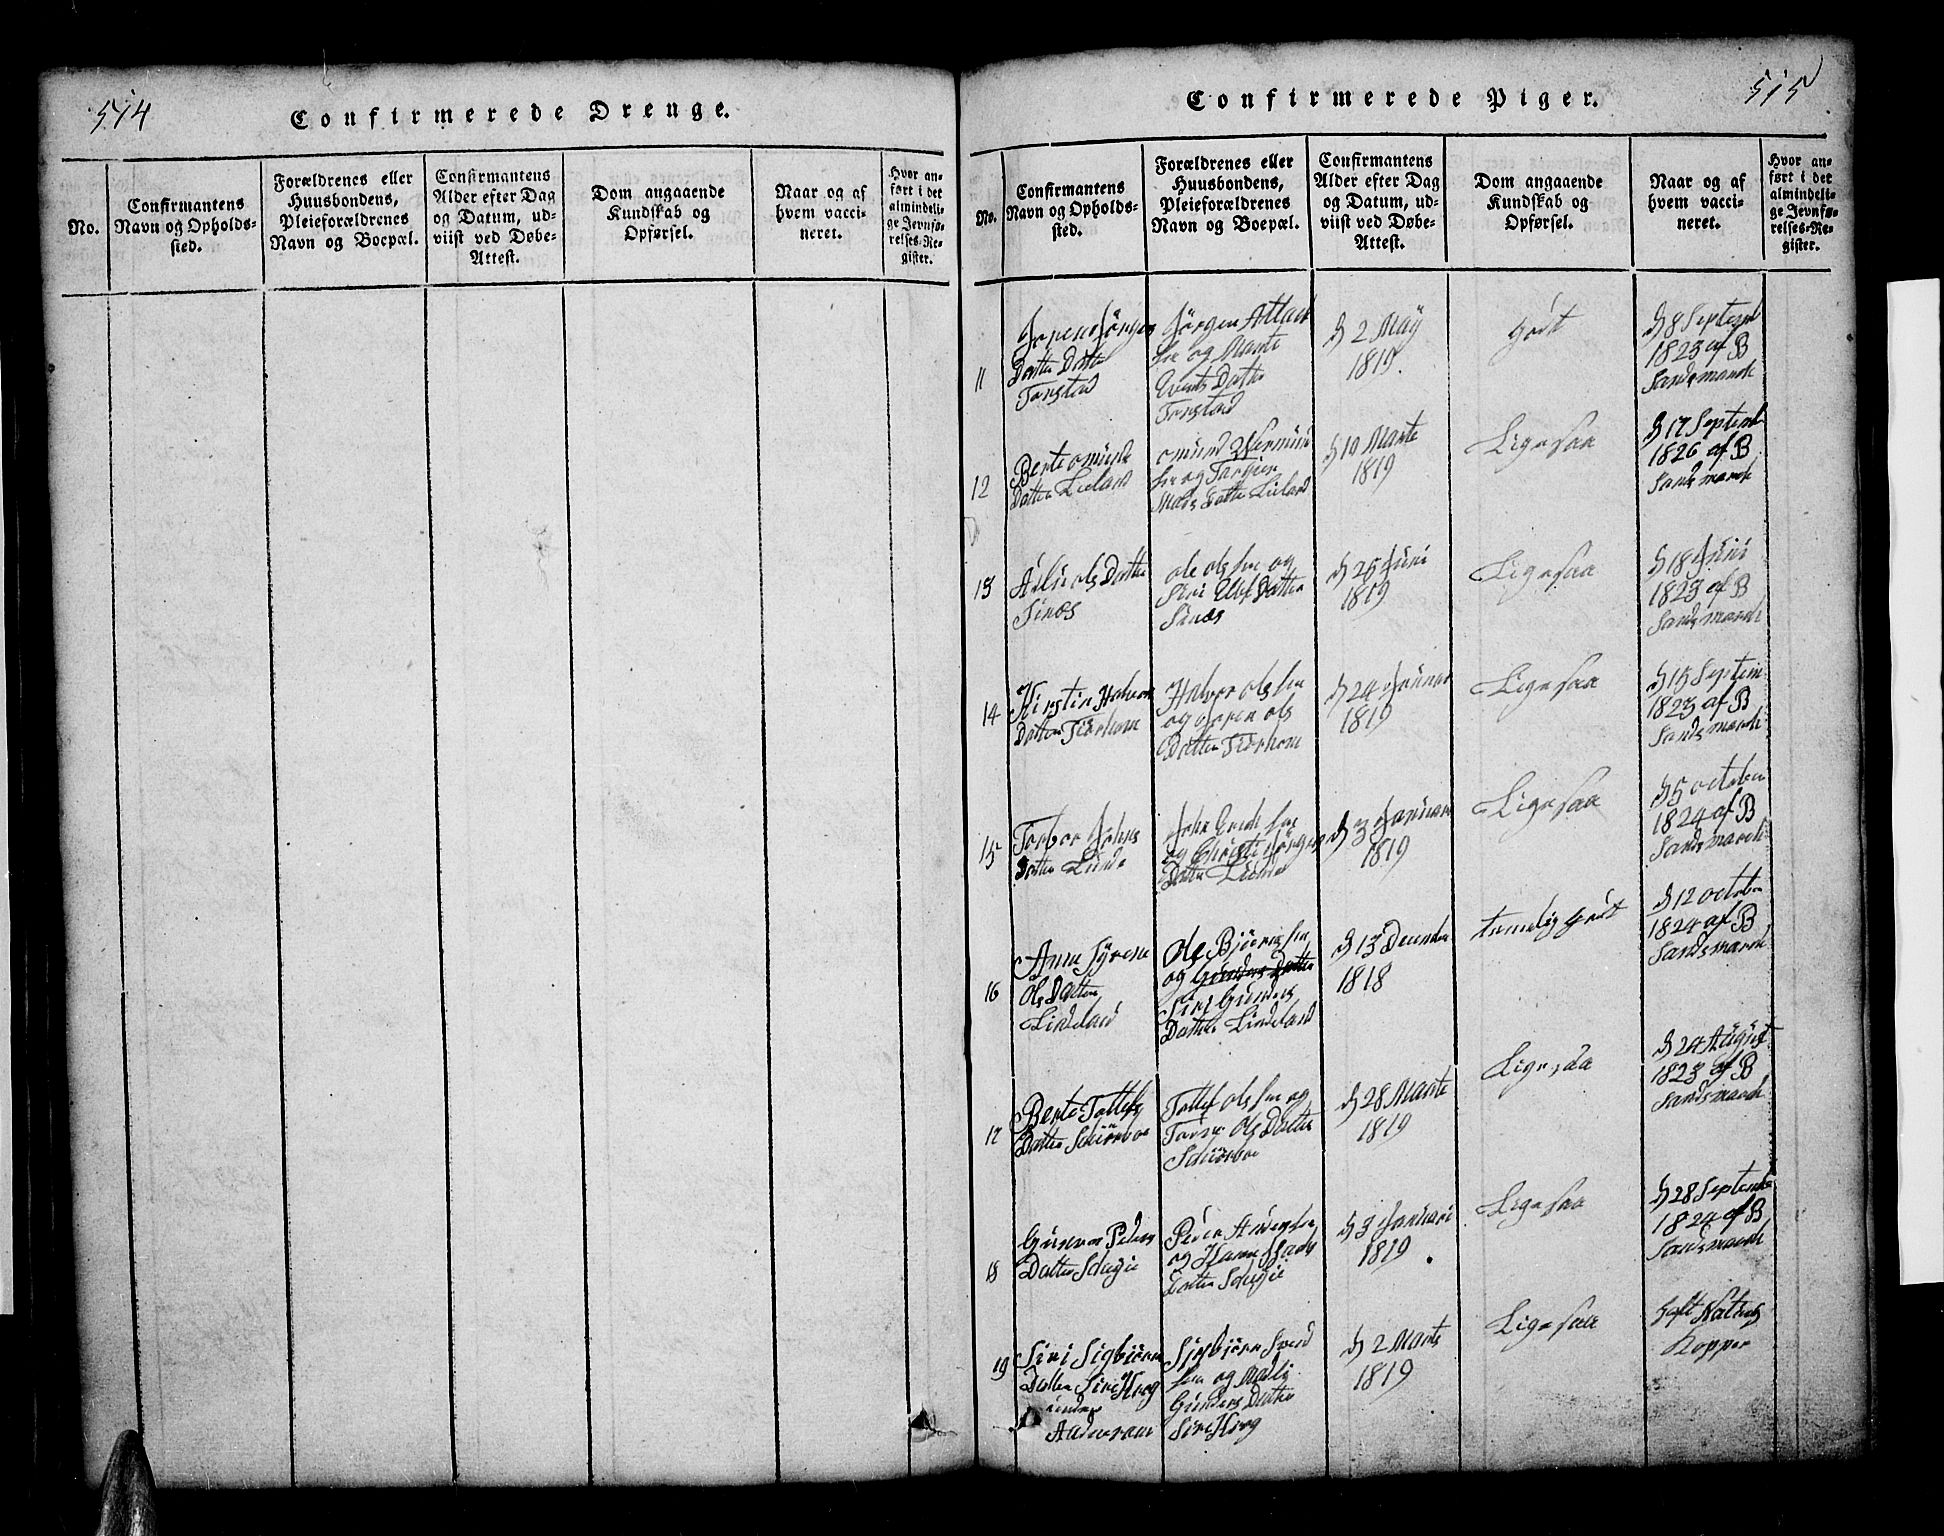 514
Confirmerede Drenge.
No.
Confirmantens
Navn og Opholds-
sted.
Forældrenes eller
Huusbondens,
Pleieforældrenes
Navn og Boepæl.
Confirmantens
Alder efter Dag
og Datum, ud-
viist ved Døbe-
Attest.
Dom angaaende
Kundskab og
Opførsel.
Naar og af
hvem vacci-
neret.
Hvor an-
ført i det
almindeli-
ge Jevnfø-
relses-Re-
gister.
515
Confirmerede Piger.
No.
Confirmantens
Navn og Opholds-
sted.
Forældrenes eller
Huusbondens,
Pleieforældrenes
Navn og Boepæl.
Confirmantens
Alder efter Dag
og Datum, ud-
viist ved Døbe-
Attest.
Dom angaaende
Kundskab og
Opførsel.
Naar og af
hvem vacci-
neret.
Hvor an-
ført i det
almindeli-
ge Jevnfø-
relses-Re-
gister.
11
Datter
Torstad
Jørgen
og Marte
Datter
Torstad
d 2 May
1819
godt
d 8 Septemb
1823 af B
Sandsmark
12
Berte
Datter
og
Datter
d 10 Marte
1819
Ligesaa
d 17 Septemb
1826 af B
Sandsmark
13
Ols Datter
Sinæs
Ole Olsen og
Siri Datter
Sinæs
d 25 Juni
1819
Ligesaa
d 18 Juni
1823 af B
Sandsmark
14
Kirstin Halvors
Datter Tiørhom
Halvor Olsen
og Joren Ols
Datter Tiørhom
d 24 Januar
1819
Ligesaa
d 15 Septem
1823 af B
Sandsmark
15
Torbor Johns
Datter Lunde
John
og Christi Jørgens
Datter Lunde
d 3 Januar
1819
Ligesaa
d 5 october
1824 af B
Sandsmark
16
Anne Syrene
Ols Datter
Lindeland
Ole Bjørnsen
og Gunders Datter
Siri Gunders
Datter Lindeland
d 13 December
1818
temelig godt
d 12 october
1824 af B
Sandsmark
17
Berte Tollefs
Datter
Tollef Olsen og
Ols Datter
d 28 Marte
1819
Ligesaa
d 24 August
1823 af B
Sandsmark
18
Gunvor Peders
Datter
Peder
og
Datter
d 3 Januari
1819
Ligesaa
d 28 Septemb
1824 af B
Sandsmark
19
Siri Sigbiørn
Datter Sirekrog
under
Sigbjørn Svend
sen og Mali
Gunders Datter
Sirekrog
d 2 Marte
1819
Ligesaa
haft Naturlig
Kopper